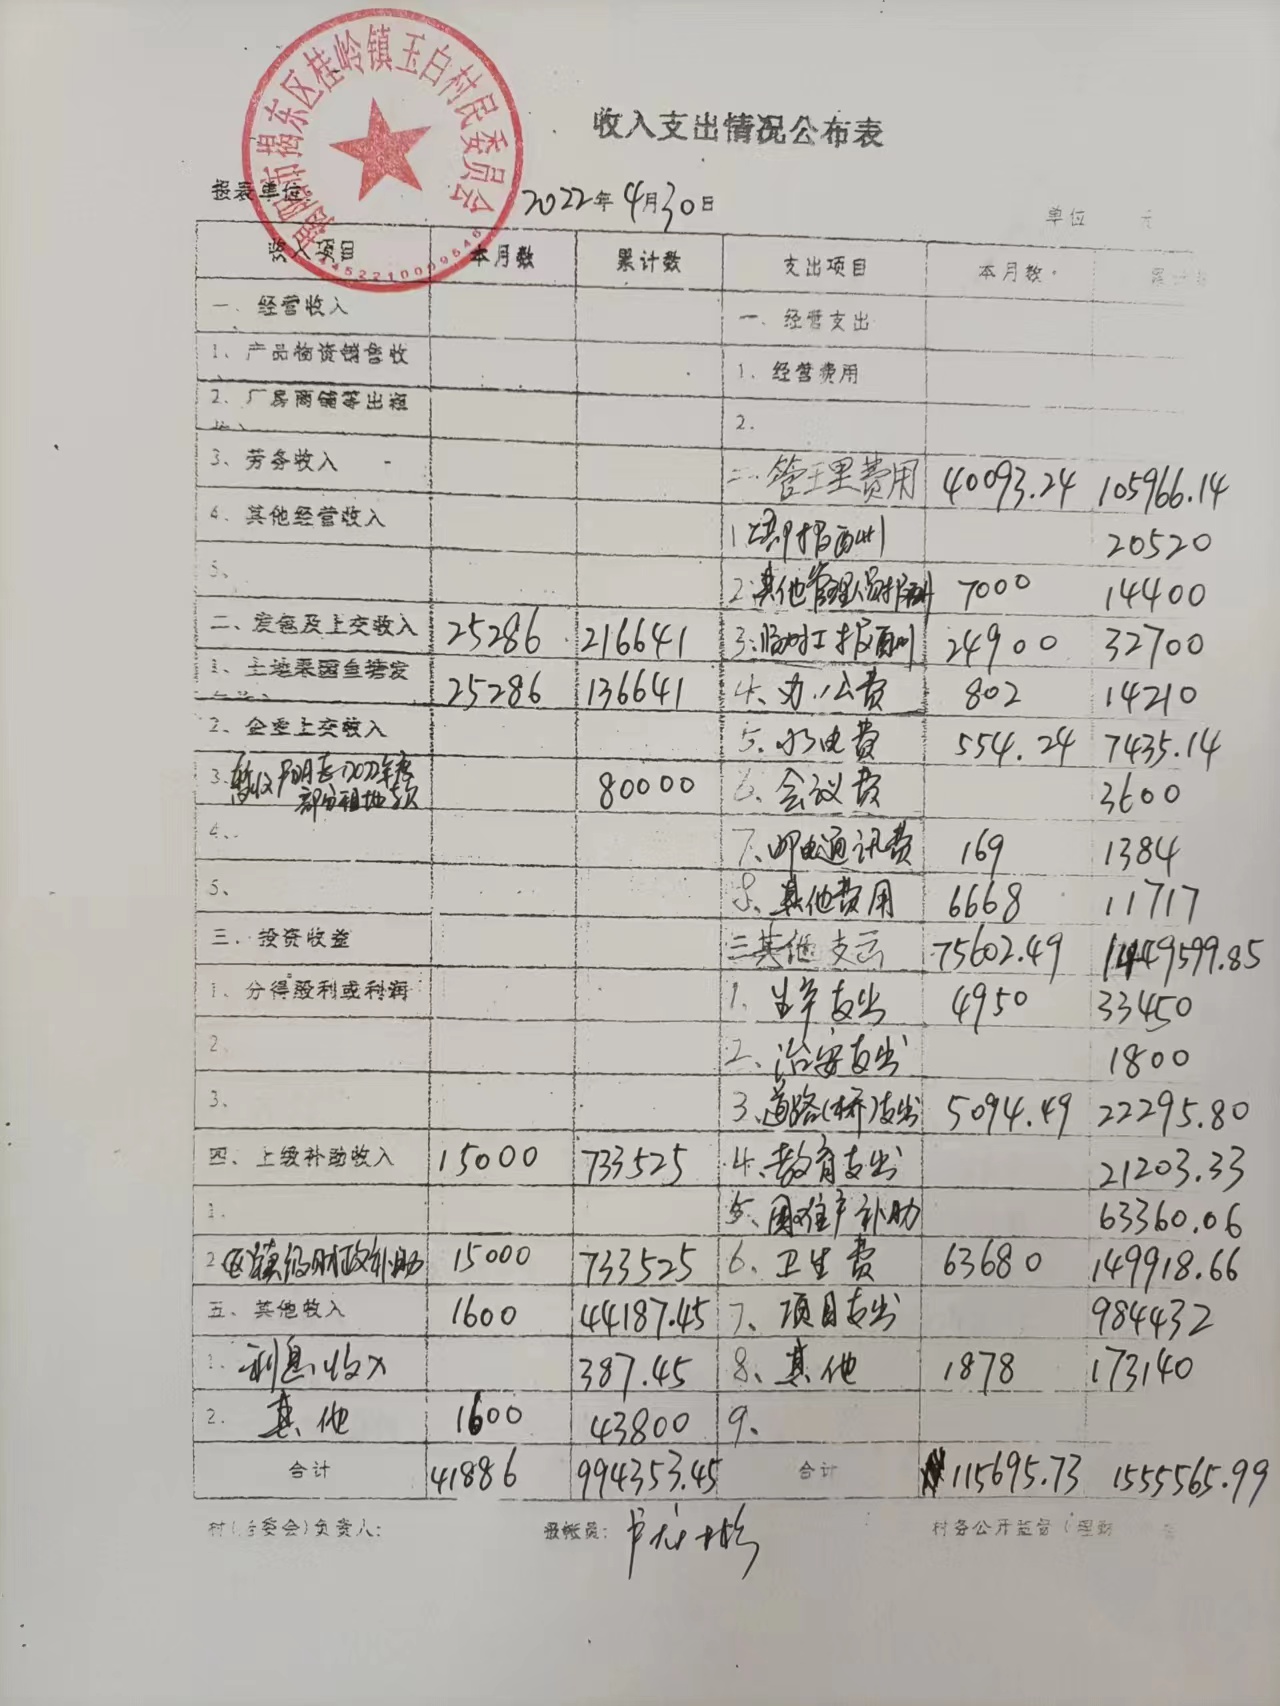 收入支出情况公布表
揭阳市揭东区桂岭镇玉白村民委员会
报表单位: 2022年4月30日 单位 元
收入项目 本月数 累计数 支出项目 本月数 累计
一. 经营收入 一. 经营支出
1、产品物资销售收 1. 经营费用
2. 厂房商铺等出租 2.
3、劳务收入 二.管理费用 40093.24 105966.14
4、其他经营收入 1.干部报酬 20520
5、 2.其他管理人员报酬 7000 14400
二、发包及上交收入 25286 216641 3.临时工报酬 24900 32700
1、土地果园鱼塘发 25286 136641 4、办公费 802 14210
2、企业上交收入 5、水电费 554.24 7435.14
3. 暂收 2022年度部分租地款 80000 6、会议费 3600
4. 7、邮电通讯费 169 1384
5、 8、其他费用 6668 11717
三. 投资收益 三其他支出 75602.49 1449599.85
1、分得股利或利润 1、生产支出 4950 33450
2. 2、治安支出 1800
3. 3、道路(桥)支出 5094.49 22295.80
四、上级补助收入 15000 733525 4.教育支出 21203.33
1. 5、困难户补助 63360.06
2.区镇级财政补助 15000 733525 6、卫生费 63680 149918.66
五、其他收入 1600 44187.45 7、项目支出 984432
1. 利息收入 387.45 8、其他 1878 173140
2. 其他 1600 43800 9、
合计 41886 994353.45 合计 115695.73 1555565.99
村(居委会)负责人: 报帐员: 村务公开监督(理财